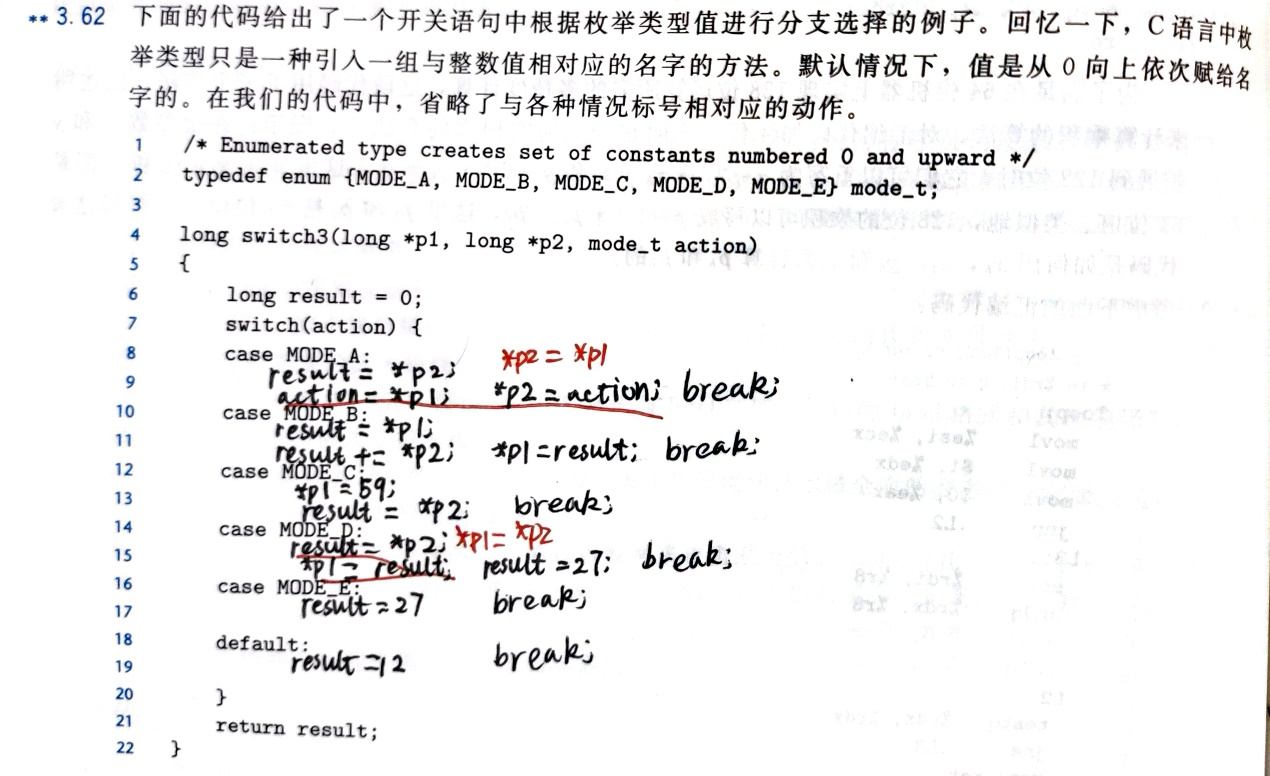 ** 3.62 下面的代码给出了一个开关语句中根据枚举类型值进行分支选择的例子。回忆一下，C 语言中枚
举类型只是一种引入一组与整数值相对应的名字的方法。默认情况下，值是从 0 向上依次赋给名
字的。在我们的代码中，省略了与各种情况标号相对应的动作。
1 /* Enumerated type creates set of constants numbered 0 and upward */
2 typedef enum {MODE_A, MODE_B, MODE_C, MODE_D, MODE_E} mode_t;
3
4 long switch3(long *p1, long *p2, mode_t action)
5 {
6 long result = 0;
7 switch(action) {
8 case MODE_A: *p2 = *p1
result = *p2;
9 action = *p1; *p2 = action; break;
10 case MODE_B:
result = *p1;
11 result += *p2; *p1 = result; break;
12 case MODE_C:
*p1 = 59;
13 result = *p2; break;
14 case MODE_D:
result = *p2; *p1 = *p2
15 *p1 = result; result = 27; break;
16 case MODE_E:
17 result = 27 break;
18 default:
19 result = 12 break;
20 }
21 return result;
22 }